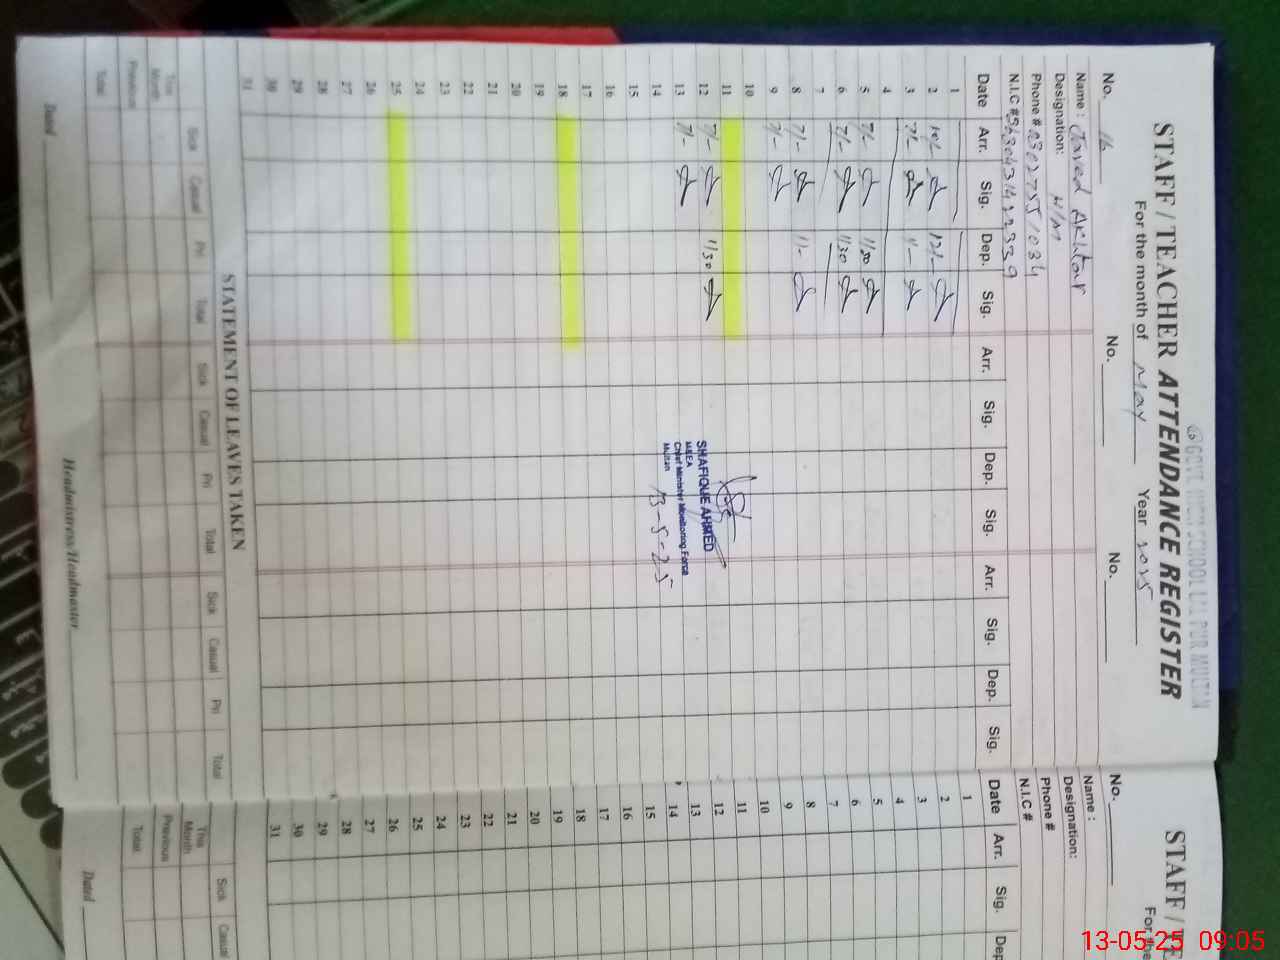 GOVT HIGH SCHOOL L/L PUR MULTAN
STAFF / TEACHER ATTENDANCE REGISTER
For the month of May Year 2025
No. 16 No. No.
Name : Javed Akhtar
Designation: H/M
Phone # 03027551034
N.I.C #
Date Arr. Sig. Dep. Sig. Arr. Sig. Dep. Sig. Arr. Sig. Dep. Sig.
1
2 10/- 12/-
3 7/- 1/-
4
5 7/- 1/30
6 7/- 1/30
7
8 7/- 1/-
9 7/-
10
11
12 7/- 1/30
13 7/-
14
15
16
17
18
19
20
21
22
23
24
25
26
27
28
29
30
31
SHAFIQUE AHMED
MEEA
Chief Minister Monitoring Force
Multan
13-5-25
STATEMENT OF LEAVES TAKEN
Sick Casual Pri Total Sick Casual Pri Total Sick Casual Pri Total
This Month
Previous
Total
Dated Headmistress/Headmaster
STAFF / TE
For the
No.
Name :
Designation:
Phone #
N.I.C #
Date Arr. Sig. Dep
1
2
3
4
5
6
7
8
9
10
11
12
13
14
15
16
17
18
19
20
21
22
23
24
25
26
27
28
29
30
31
Sick Casual
This Month
Previous
Total
Dated
13-05-25 09:05